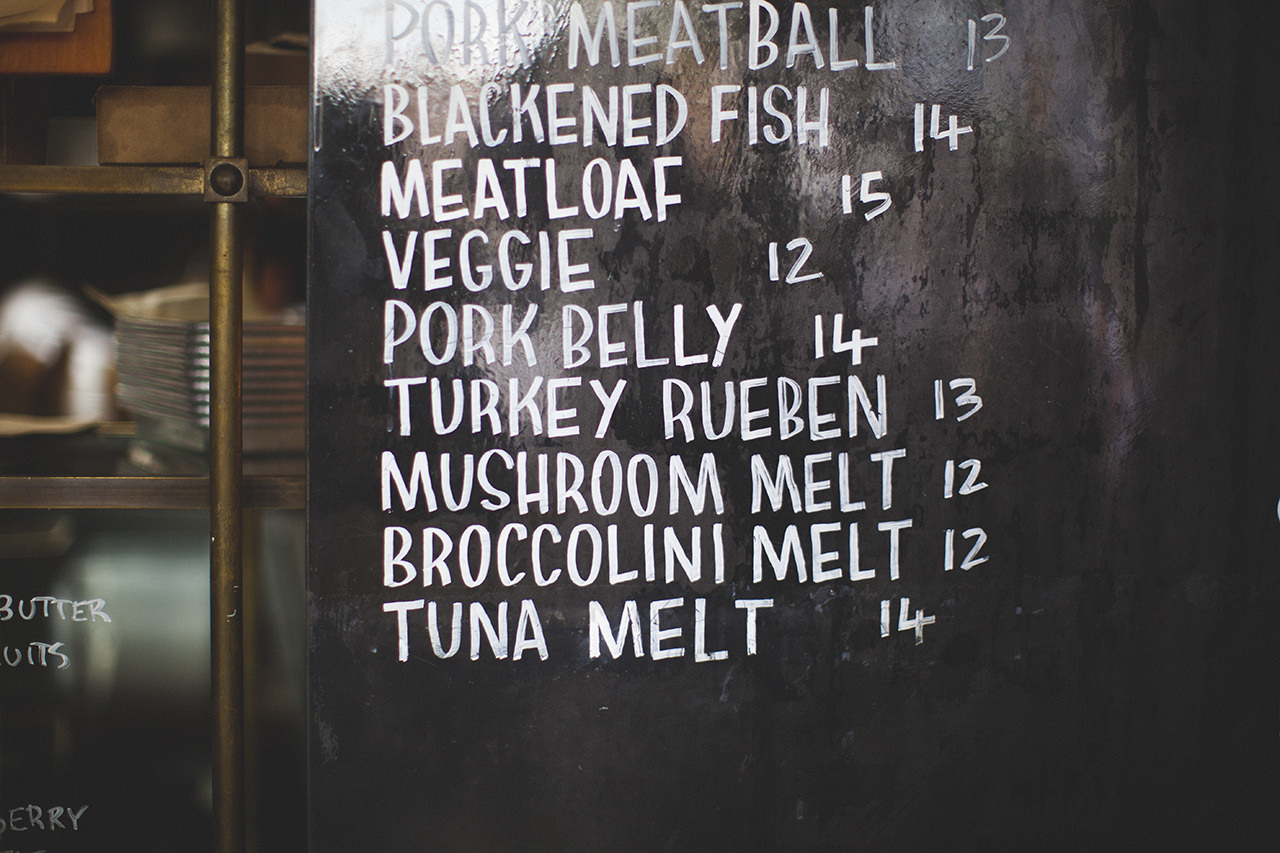 PORK MEATBALL 13
BLACKENED FISH 14
MEATLOAF 15
VEGGIE 12
PORK BELLY 14
TURKEY RUEBEN 13
MUSHROOM MELT 12
BROCCOLINI MELT 12
TUNA MELT 14
BUTTER